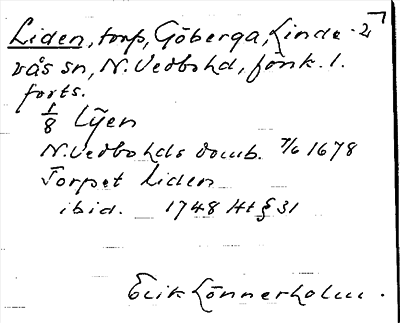 Liden, torp, Göberga, Linde- 2
rås sn, N. Vedbohd, Jönk. l.
forts.
1/8 Lÿen
N. Vedbohds domb. 7/6 1678
Torpet Liden
ibid. 1748 Ht § 31
Erik Lönnerholm.